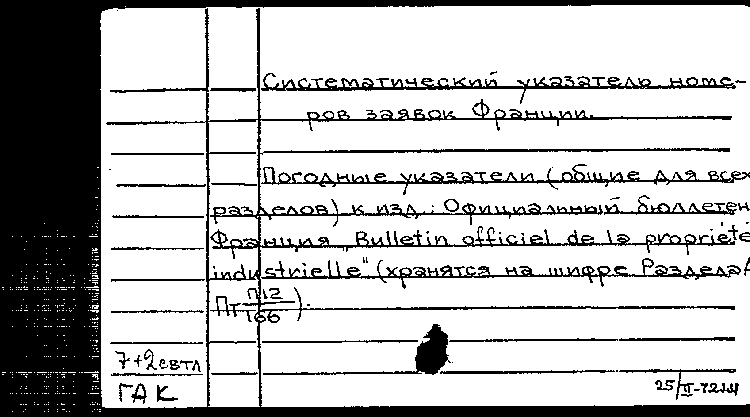 Систематический указатель номе-
ров заявок Франции.
Погодные указатели (общие для всех
разделов) к изд.: Официальный бюллетень
Франция „Bulletin officiel de la propriété
industrielle" (хранятся на шифре Раздела А
Пт П12/166).
7+2 евтл
ГАК
25/II-72